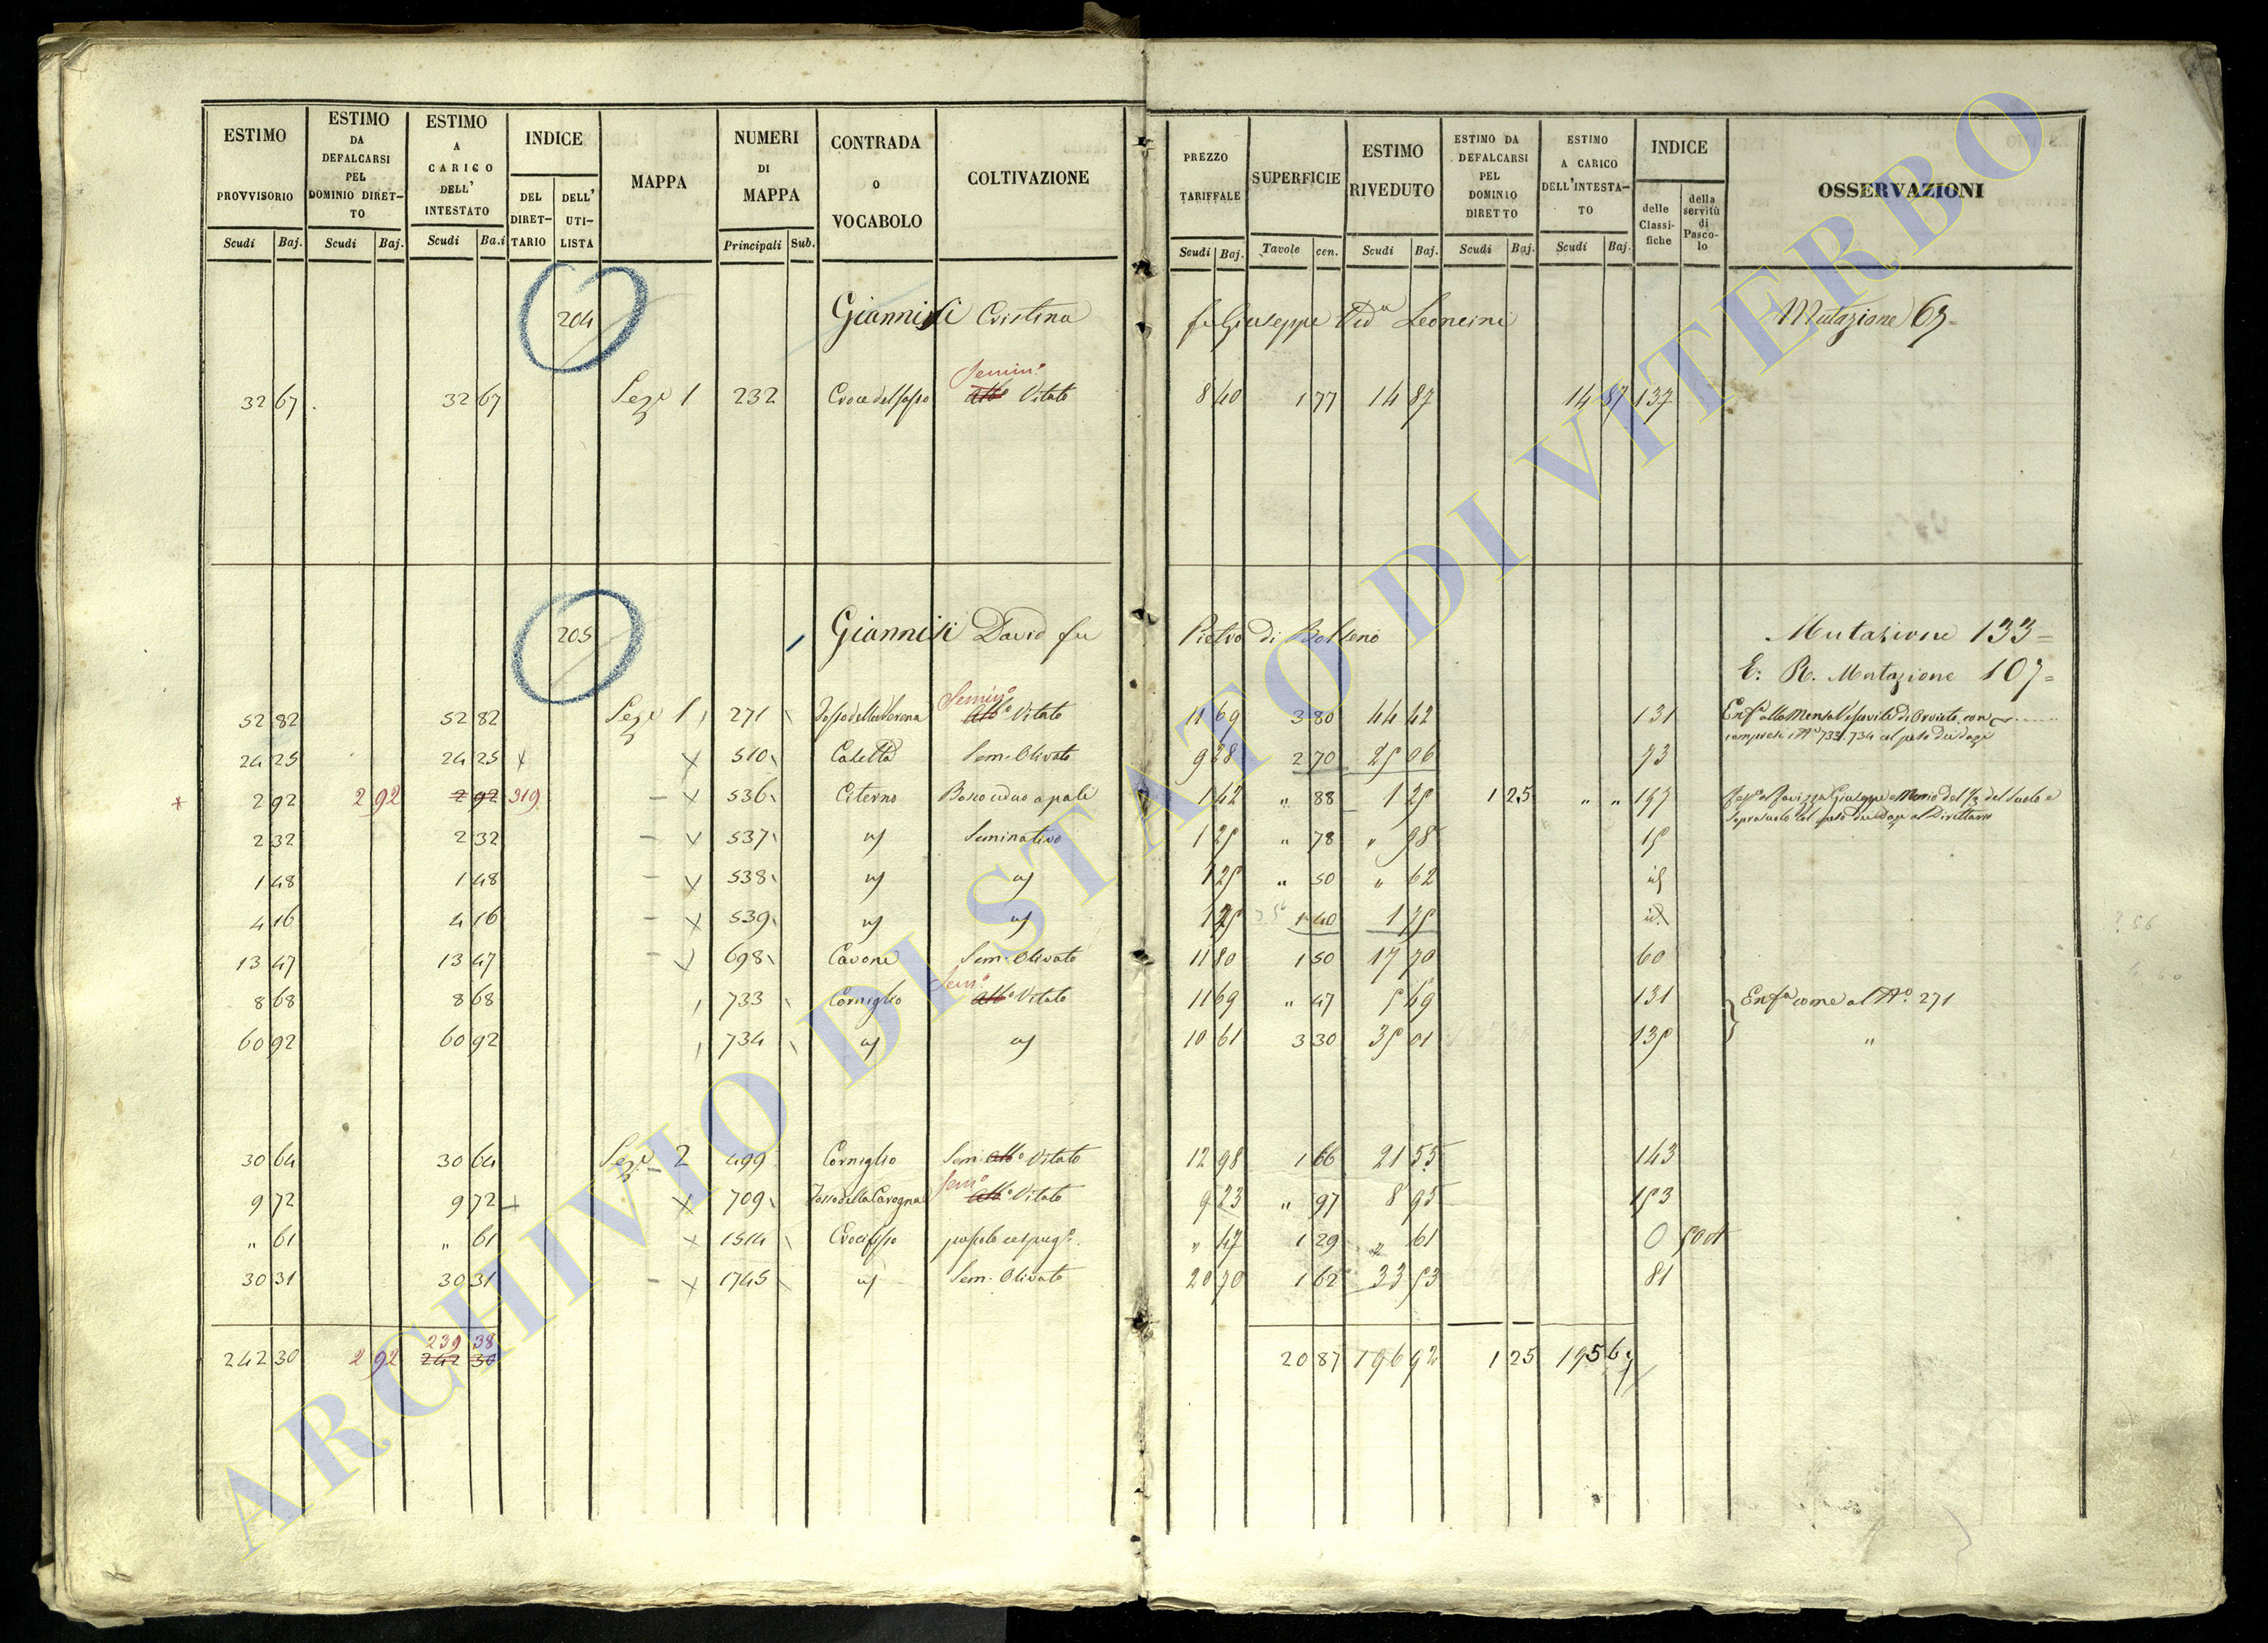 ESTIMO PROVVISORIO Scudi Baj.
ESTIMO DA DEFALCARSI PEL DOMINIO DIRET-TO Scudi Baj.
ESTIMO A CARICO DELL' INTESTATO Scudi Ba.i
INDICE DEL DIRET-TARIO DELL' UTI-LISTA
MAPPA
NUMERI DI MAPPA Principali Sub.
CONTRADA O VOCABOLO
COLTIVAZIONE
PREZZO TARIFFALE Scudi Baj.
SUPERFICIE Tavole cen.
ESTIMO RIVEDUTO Scudi Baj.
ESTIMO DA DEFALCARSI PEL DOMINIO DIRETTO Scudi Baj.
ESTIMO A CARICO DELL'INTESTA-TO Scudi Baj.
INDICE delle Classi-fiche della servitù di Pasco-lo
OSSERVAZIONI
204 Giannisi Cristina fu Giuseppe Ved.a Leoncini Mutazione 63=
Semin.o
32 67 32 67 Sez.e 1 232 Croce del Sasso Alb.o Vitato 8 40 1 77 14 87 14 87 137
205 Giannisi David fu Pietro di Bolseno Mutazione 133=
E: R. Mutazione 107=
Semin.o
52 82 52 82 Sez.e 1 271 Alb.o Vitato 11 69 3 80 44 42 131 Enf.a alla Mensa Vescovile di Orvieto con
compresi i N.i 733. 734 col peso dei dazi
24 25 24 25 510 Casetta Sem. Olivato 9 28 2 70 25 06 73
* 2 92 2 92 2 92 319 536 Citerno Bosco ceduo a pali 1 42 " 88 1 25 1 25 " " 157 Giuseppe e Mario del 1/3 del Suolo e
Soprasuolo col peso dei Dazi al Direttario
2 32 2 32 537 id Seminativo 1 25 " 78 " 98 15
1 48 1 48 538 id id 1 25 " 50 " 62 id
4 16 4 16 539 id id 1 25 1 40 1 75 id.
13 47 13 47 698 Cavone Sem. Olivato 11 80 1 50 17 70 60
Sem.o
8 68 8 68 733 Corniglio Alb.o Vitato 11 69 " 47 5 49 131 Enf.a come al N.o 271
60 92 60 92 734 id id 10 61 3 30 35 01 135 "
30 64 30 64 Sez.e 2 499 Corniglio Sem. Alb.o Vitato 12 98 1 66 21 55 143
Sem.o
9 72 9 72 709 Fosso della Carogna Alb.o Vitato 9 23 " 97 8 95 153
" 61 " 61 1514 Crocifisso pascolo cespug.o " 47 1 29 " 61 0
30 31 30 31 1745 id Sem. Olivato 20 70 1 62 33 53 81
239 38
242 30 2 92 242 30 20 87 196 92 1 25 195 67
ARCHIVIO DI STATO DI VITERBO